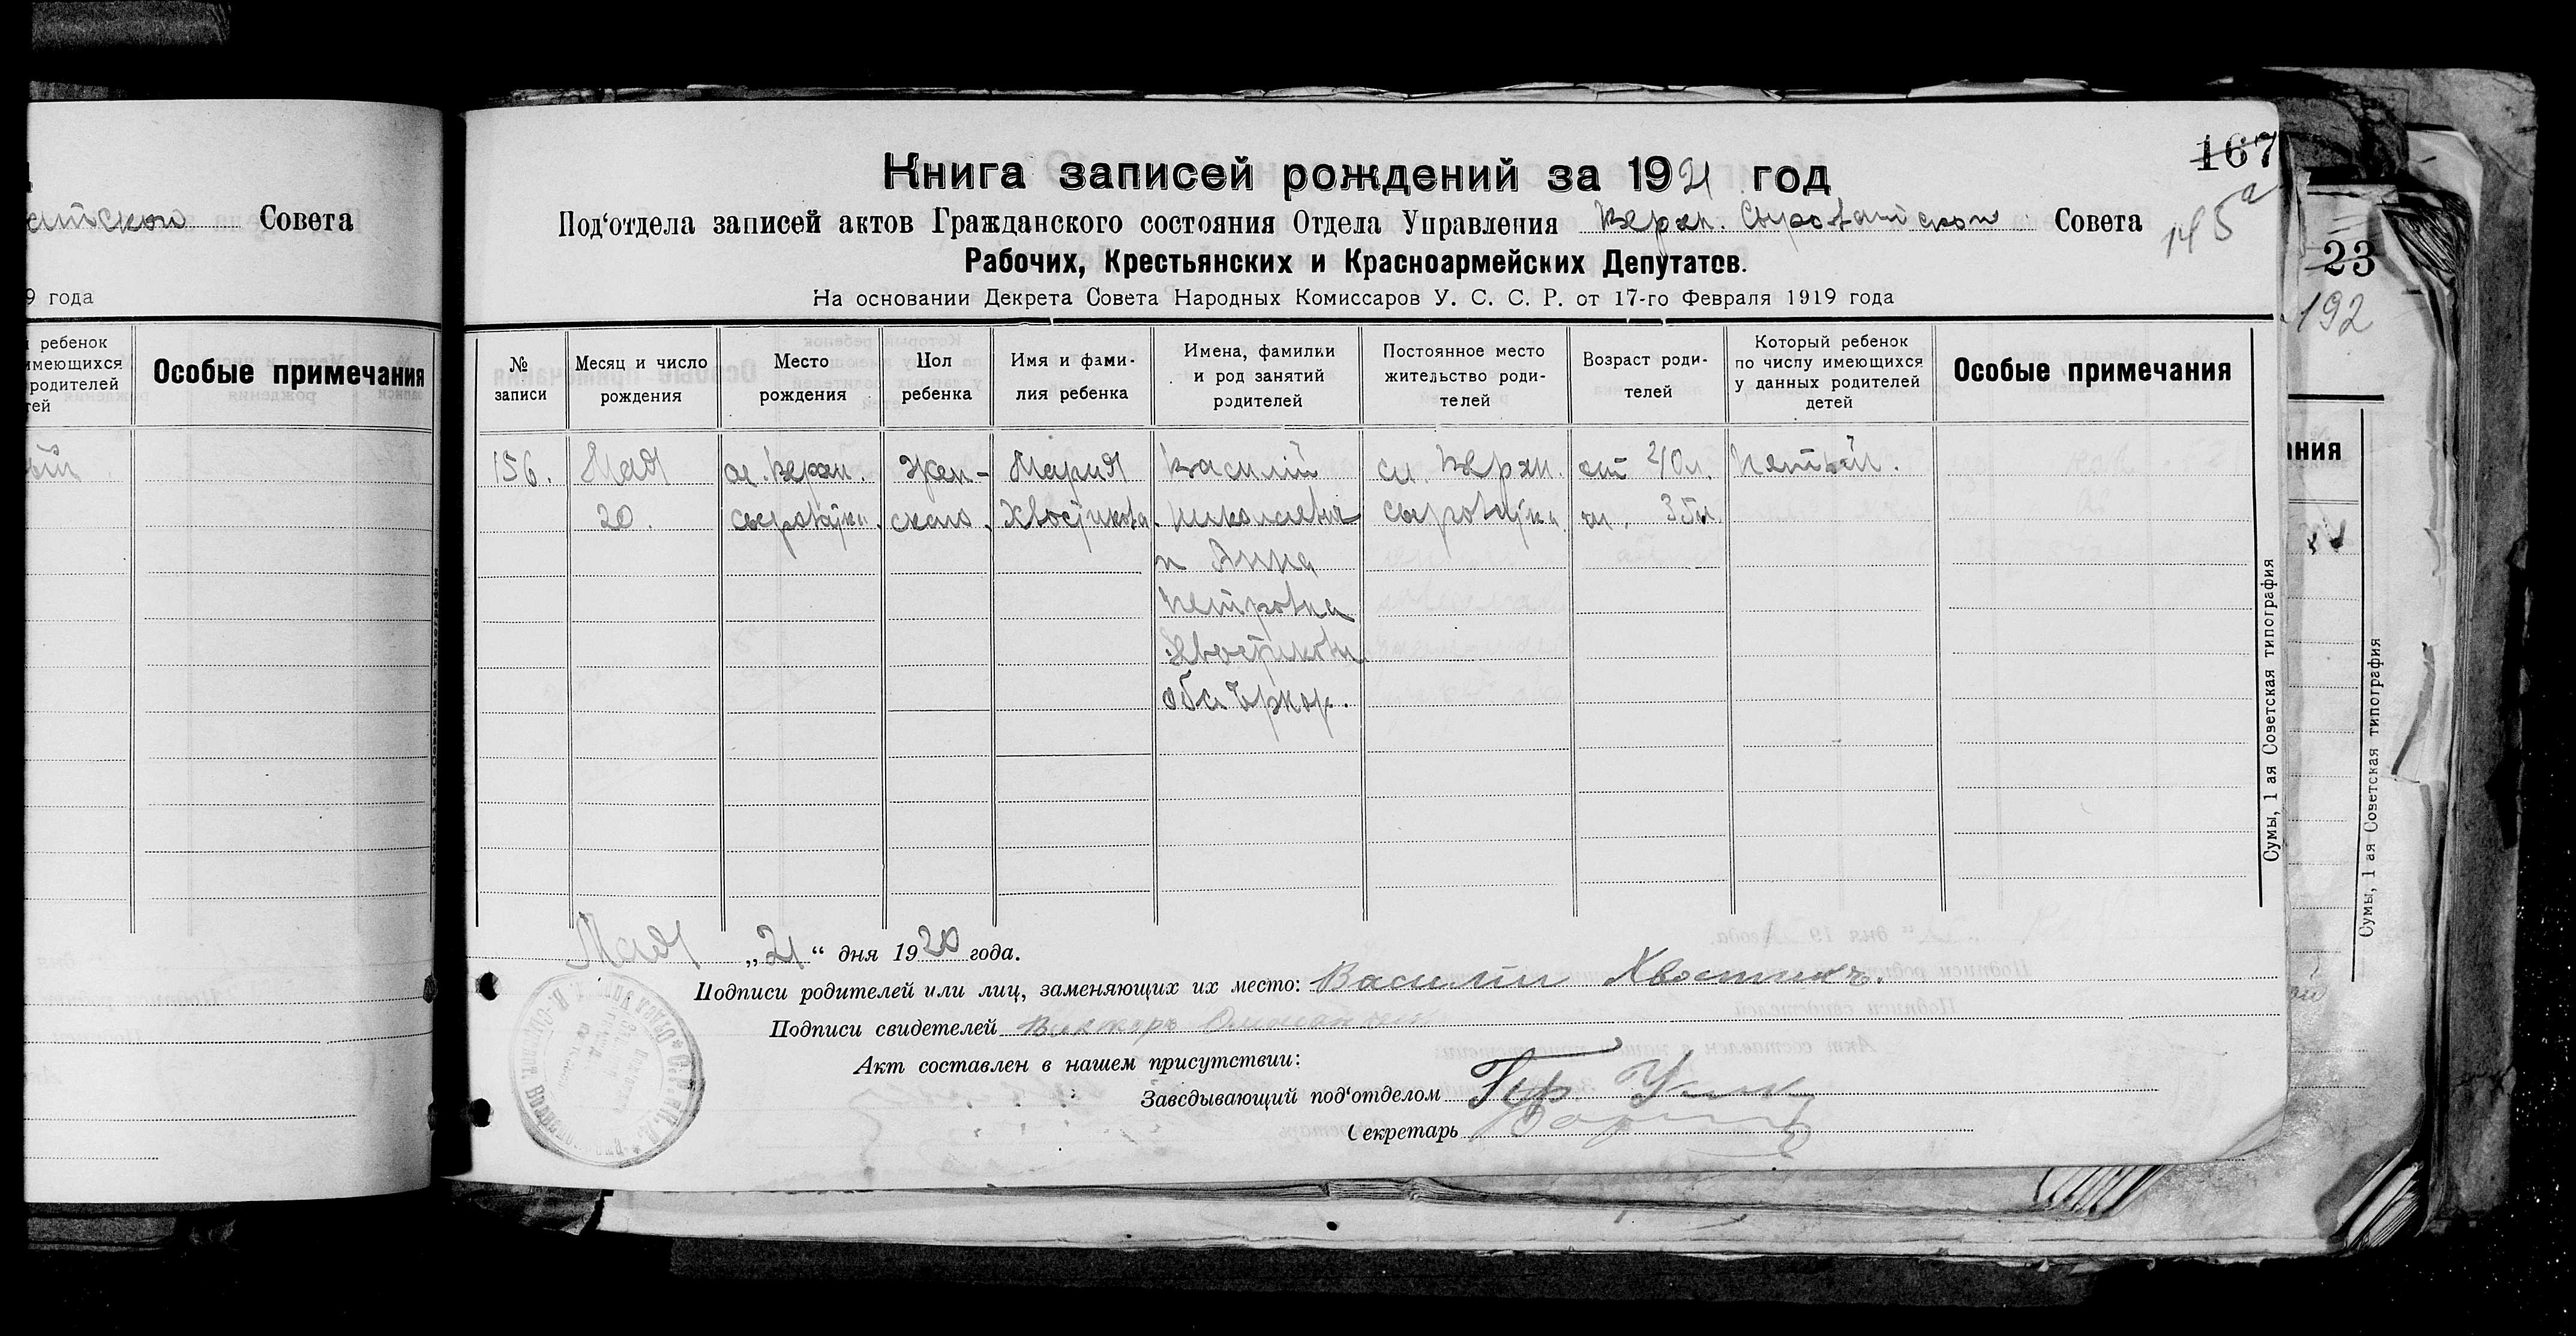 атской Совета
9 года
ребенок
имеющихся
родителей
тей
Особые примечания
ый
167
145а
Книга записей рождений за 1921 год
Под‘отдела записей актов Гражданского состояния Отдела Управления Верхн. Сыроватской Совета
Рабочих, Крестьянских и Красноармейских Депутатов.
На основании Декрета Совета Народных Комиссаров У. С. С. Р. от 17-го Февраля 1919 года
№ записи
Месяц и число рождения
Место рождения
Пол ребенка
Имя и фами-
лия ребенка
Имена, фамилии
и род занятий
родителей
Постоянное место
жительство роди-
телей
Возраст роди-
телей
Который ребенок
по числу имеющихся
у данных родителей
детей
Особые примечания
156.
Мая
20.
сл. Верхн.
Сыроватка.
Жен-
ского.
Мария
Хвостикова.
Василий
Николаевич
и Анна
Петровна
Хвостикови
оба Укр.
сл. Верхн.
Сыроватка.
от 40л.
м. 35л.
Пятый.
Мая „21“ дня 1920 года.
Подписи родителей или лиц, заменяющих их место: Василий Хвостик.
Подписи свидетелей Виктор
Акт составлен в нашем присутствии:
Заведывающий под‘отделом
Секретарь
Сумы, 1 ая Советская типография
23
192
ания
Сумы, 1 ая Советская типография